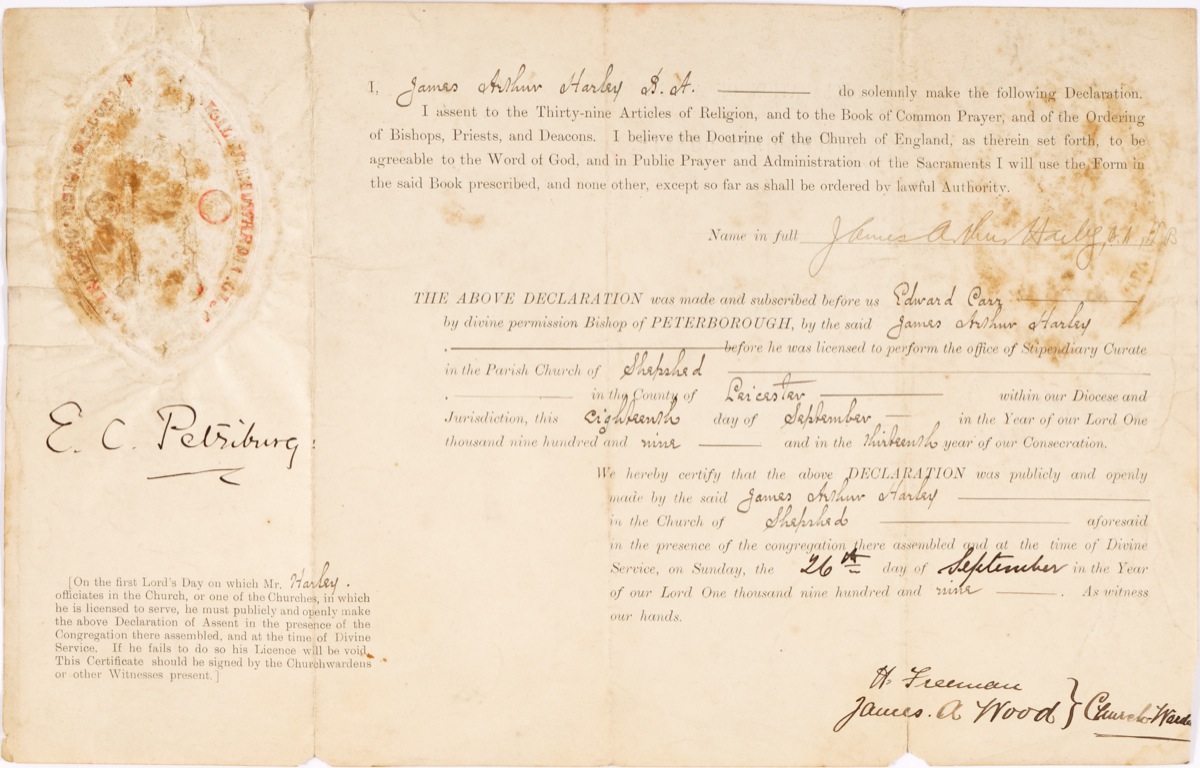 I, James Arthur Harley B.A. do solemnly make the following Declaration.
I assent to the Thirty-nine Articles of Religion, and to the Book of Common Prayer, and of the Ordering
of Bishops, Priests, and Deacons. I believe the Doctrine of the Church of England, as therein set forth, to be
agreeable to the Word of God, and in Public Prayer and Administration of the Sacraments I will use the Form in
the said Book prescribed, and none other, except so far as shall be ordered by lawful Authority.
Name in full James Arthur Harley,
THE ABOVE DECLARATION was made and subscribed before us Edward Carr
by divine permission Bishop of PETERBOROUGH, by the said James Arthur Harley
before he was licensed to perform the office of Stipendiary Curate
in the Parish Church of Shepshed
in the County of Leicester within our Diocese and
Jurisdiction, this eighteenth day of September in the Year of our Lord One
thousand nine hundred and nine and in the thirteenth year of our Consecration.
E. C. Petriburg:
We hereby certify that the above DECLARATION was publicly and openly
made by the said James Arthur Harley
in the Church of Shepshed aforesaid
in the presence of the congregation there assembled and at the time of Divine
Service, on Sunday, the 26th day of September in the Year
of our Lord One thousand nine hundred and nine. As witness
our hands.
[On the first Lord's Day on which Mr. Harley.
officiates in the Church, or one of the Churches, in which
he is licensed to serve, he must publicly and openly make
the above Declaration of Assent in the presence of the
Congregation there assembled, and at the time of Divine
Service. If he fails to do so his Licence will be void.
This Certificate should be signed by the Churchwardens
or other Witnesses present.]
H. Freeman
James. A Wood } Church Warde